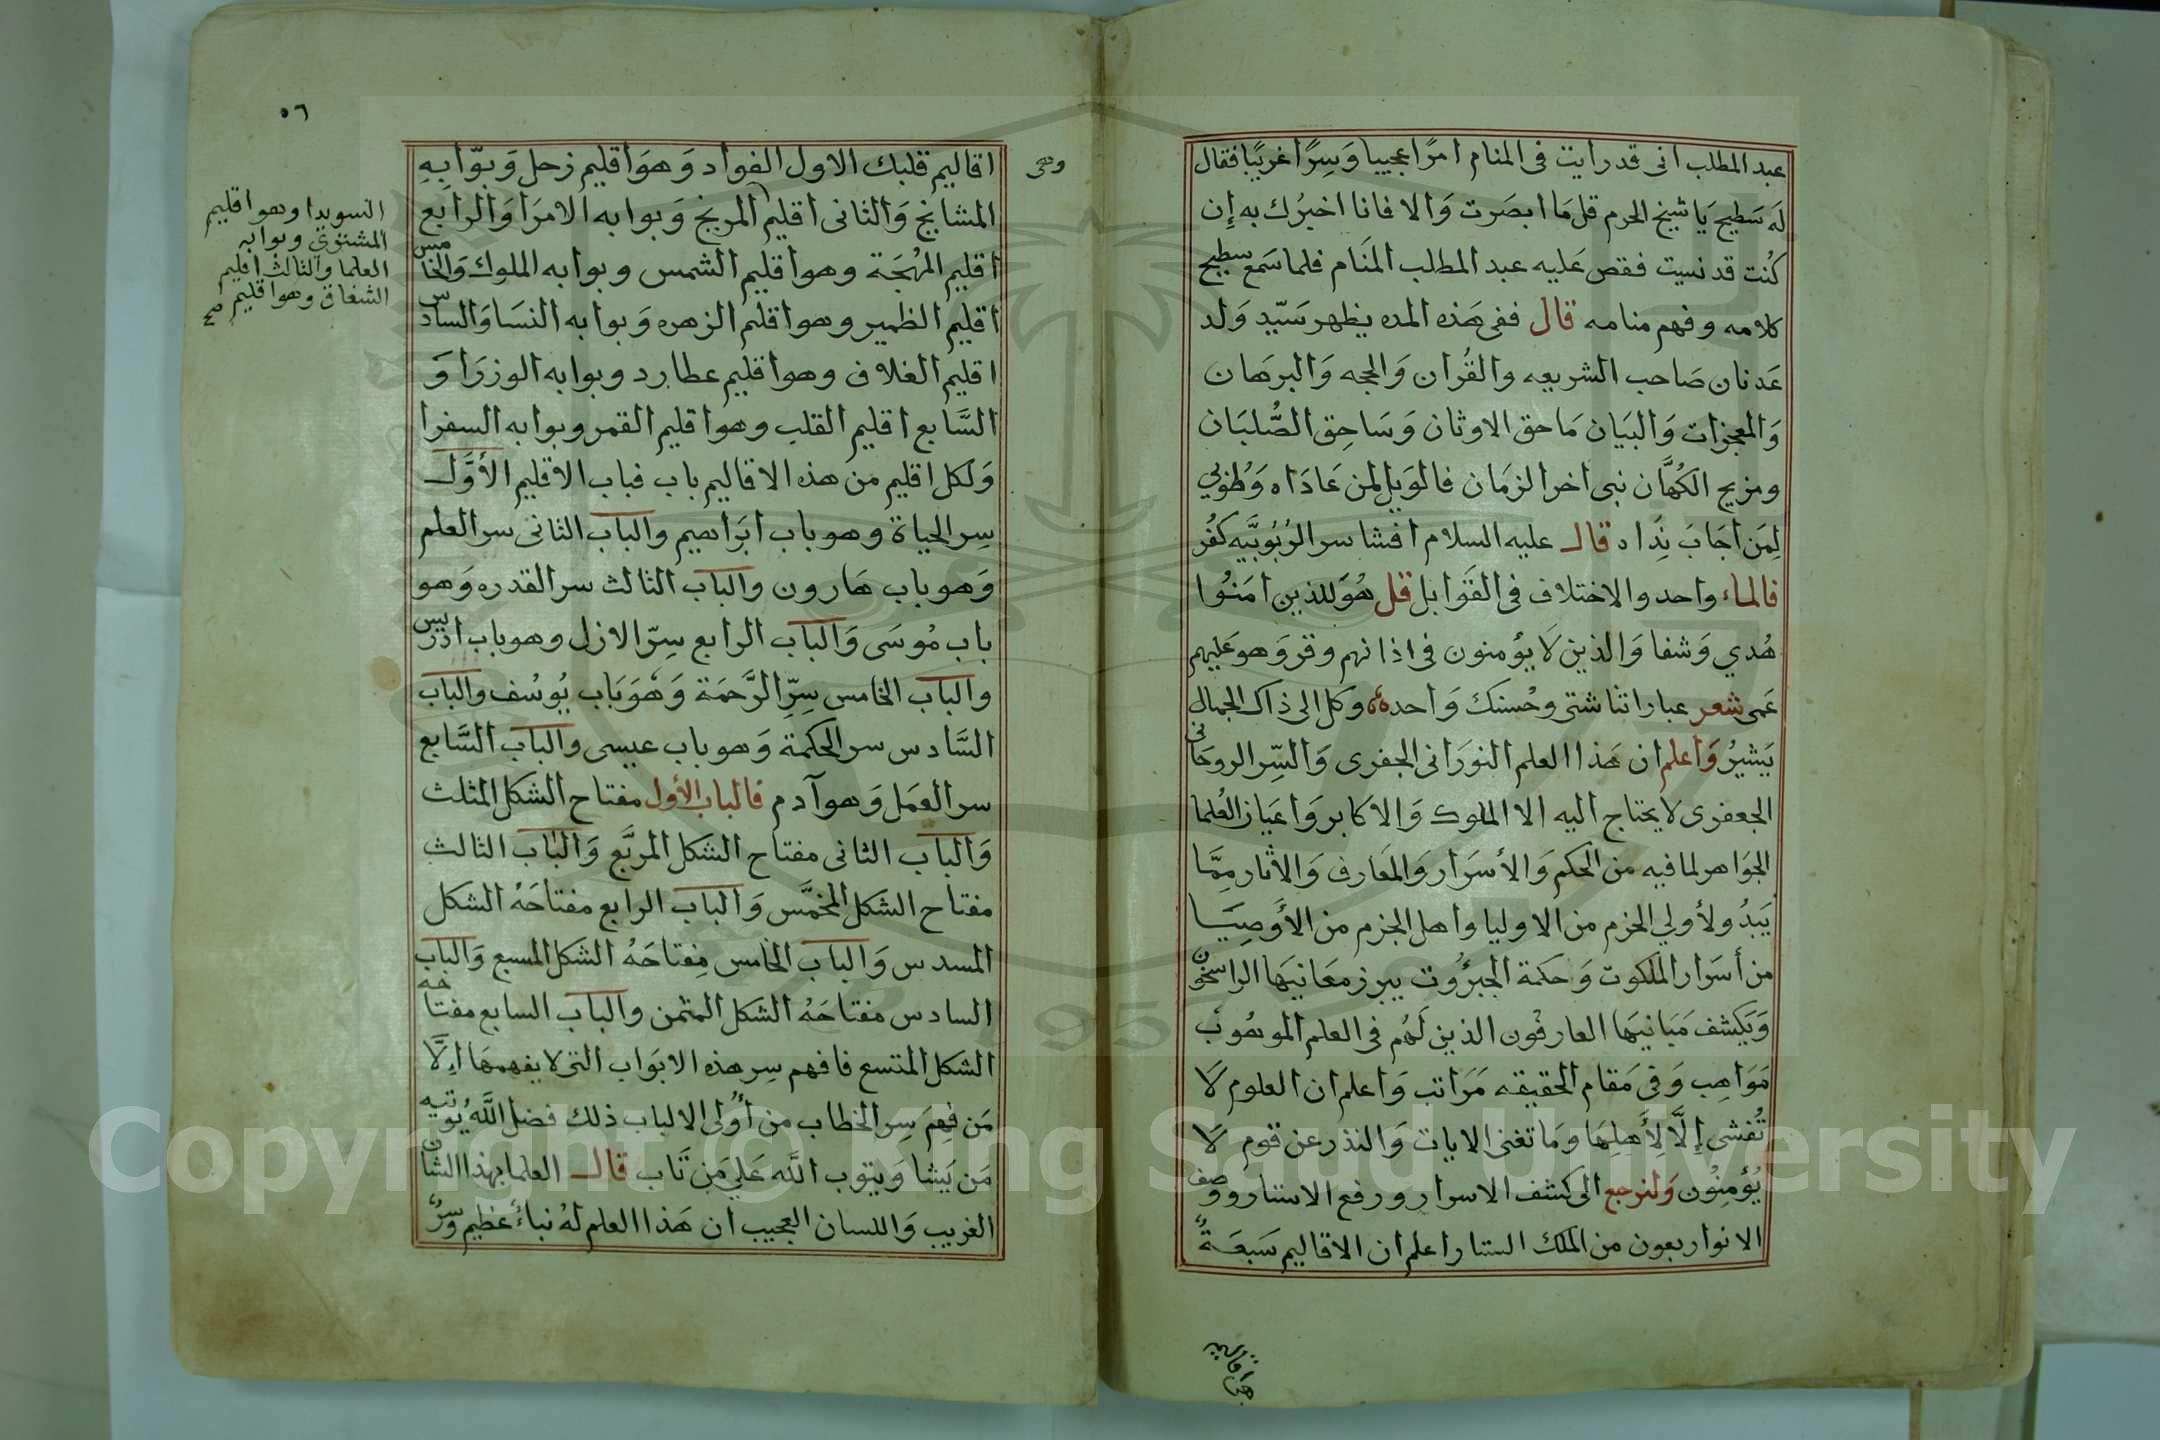 عبد المطلب انى قد رايت فى المنام امرًا عجيبا وَسِرًّا غريبًا فقال
لَه سَطيح يَا شيخ الحرم قل مَا ابصَرت وَالا فانا اخبرُك به إِن
كُنت قد نسيت فقص عَليه عبد المطلب المنَام فلما سَمع سطيح
كلامه وفهم منامه قال ففى هَذه المده يظهر سَيّد وَلد
عَدنان صَاحب الشريعه والقُران وَالحجه وَالبرهَان
وَالمعجزات وَالبيَان مَاحق الاوثان وَسَاحِق الصُّلبَان
ومزيح الكُهَّان نبى اخر الزمَان فالوَيل لمن عَادَاه وَطُوبي
لِمَن اجَابَ نِدَاه قال عليه السلام افشا سر الرُبُوبيَّه كفُر
فالماء واحد والاختلاف فى القَوابل قل هُوَ للذين امَنُوا
هُدي وَشفا وَالذين لَا يؤمنون فى اذانهم وقر وَهو عَليهم
عَمى شعر عباراتنا شتى وحُسنك وَاحده وكل الى ذاك الجمال
يَشيرُ وَاعلم ان هَذا العلم النورَانى الجفرى وَالسِّر الروحَانى
الجعفرى لا يحتاج اليه الا الملوك وَالاكابر وَاعيَان العُلما
الجوَاهر لما فيه من الحكم وَالأسرَار وَالمعَارف وَالاثار مِمَّا
يَبدُو لأولي الحزم من الاوليا واهل الجزم من الأوصيَا
من أسرَار الملكوت وَحكمة الجبرُوت يبرز معَانيهَا الراسخون
وَيَكشف مَبَانيهَا العارفُون الذين لَهُم فى العلم الموهُوب
مَوَاهِب وَفى مَقام الحقيقه مَرَاتب وَاعلم ان العلوم لَا
تُفشى إِلَّا لِأَهلِهَا ومَا تغنى الايات وَالنذر عن قوم لَا
يُؤمِنُون وَلنرجع الى كشف الاسرار ورفع الاستار ووصف
الانوار بعون من الملك الستار اعلم ان الاقاليم سَبعَةٌ
وهى
هى اقاليم
٥٦
اقاليم قلبك الاول الفواد وَهوَ اقليم زحل وَبوّابهِ
المشايخ وَالثانى اقليم المريخ وَبوابه الامرَا وَالرابع
اقليم المهُجَة وهو اقليم الشمس وبوابه الملوك وَالخامس
اقليم الظمير وهو اقليم الزهره وَبوابه النسَا وَالسادس
اقليم الغلاف وهو اقليم عطارد وبوابه الوزرَا وَ
السَّابع اقليم القلب وهو اقليم القمر وبوابه السفرا
وَلكل اقليم من هَذه الاقاليم باب فباب الاقليم الأوَّل
سِر الحياة وهو باب ابرَاهيم والباب الثانى سر العلم
وَهو باب هَارون والباب الثالث سر القدره وَهو
باب مُوسَى وَالباب الرابع سِرّ الازل وهو باب ادريس
والباب الخامس سِرِّ الرَّحمَة وَهُوَ بَاب يُوسُف والباب
السَّادس سر الحكمة وَهو باب عيسى والباب السَّابع
سر العمَل وَهو آدم فالباب الأول مفتاح الشكل المثلث
وَالباب الثانى مفتاح الشكل المربَّع وَالبَاب الثالث
مفتاح الشكل المخمَّس وَالباب الرابع مفتاحَهُ الشكل
المسدس وَالباب الخامس مِفتاحَهُ الشكل المسبع وَالباب
السادس مفتاحَهُ الشكل المثمن والباب السابع مفتاحه
الشكل المتسع فافهم سِر هذه الابوَاب التى لا يفهمهَا اِلَّا
مَن فهِمَ سِر الخطاب من أولى الالباب ذلك فضل اللَّه يُوتيه
مَن يَشا وَيتوب اللَّه عَلى مَن تَاب قال العلما بهذا الشان
الغريب وَاللسان العجيب ان هَذا العلم لهُ نباءٌ عظيم وَسرٌّ
السويدا وهو اقليم
المشتري وبوابه
العلما والثالث اقليم
الشغاق وهو اقليم صح
Copyright © King Saud University